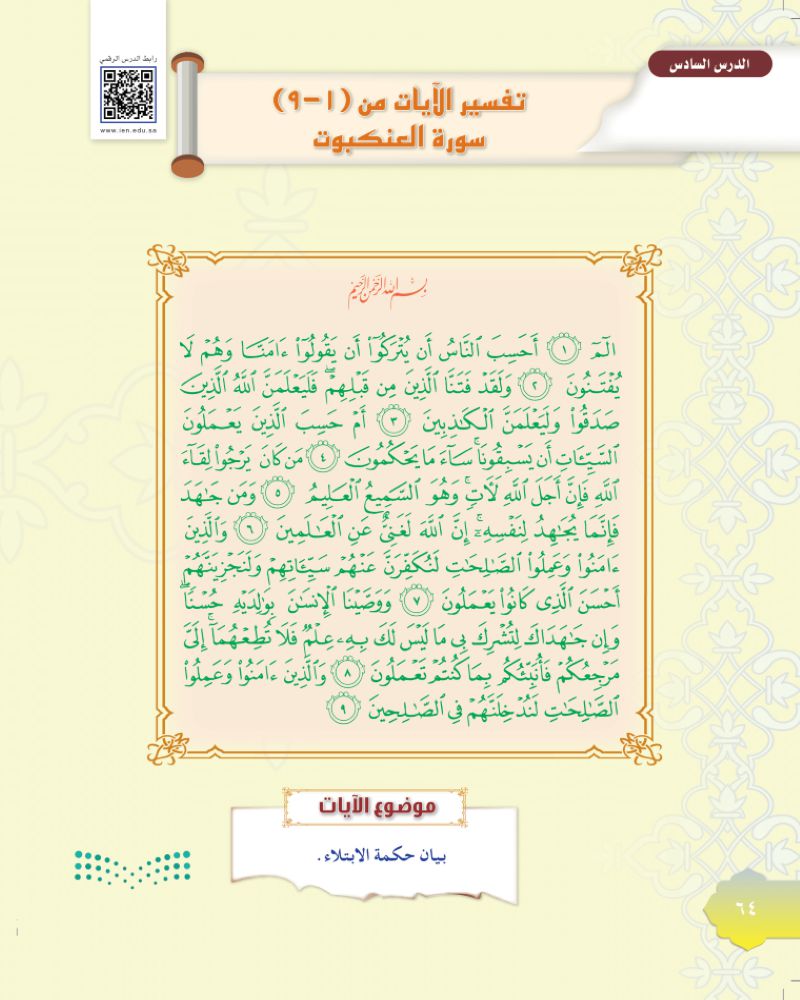 رابط الدرس الرقمي
www.ien.edu.sa
الدرس السادس
تفسير الآيات من (١-٩)
سورة العنكبوت
بِسْمِ اللَّهِ الرَّحْمَٰنِ الرَّحِيمِ
الٓمٓ ١ أَحَسِبَ ٱلنَّاسُ أَن يُتْرَكُوٓا۟ أَن يَقُولُوٓا۟ ءَامَنَّا وَهُمْ لَا
يُفْتَنُونَ ٢ وَلَقَدْ فَتَنَّا ٱلَّذِينَ مِن قَبْلِهِمْ ۖ فَلَيَعْلَمَنَّ ٱللَّهُ ٱلَّذِينَ
صَدَقُوا۟ وَلَيَعْلَمَنَّ ٱلْكَـٰذِبِينَ ٣ أَمْ حَسِبَ ٱلَّذِينَ يَعْمَلُونَ
ٱلسَّيِّـَٔاتِ أَن يَسْبِقُونَا ۚ سَآءَ مَا يَحْكُمُونَ ٤ مَن كَانَ يَرْجُوا۟ لِقَآءَ
ٱللَّهِ فَإِنَّ أَجَلَ ٱللَّهِ لَـَٔاتٍ ۚ وَهُوَ ٱلسَّمِيعُ ٱلْعَلِيمُ ٥ وَمَن جَـٰهَدَ
فَإِنَّمَا يُجَـٰهِدُ لِنَفْسِهِۦٓ ۚ إِنَّ ٱللَّهَ لَغَنِىٌّ عَنِ ٱلْعَـٰلَمِينَ ٦ وَٱلَّذِينَ
ءَامَنُوا۟ وَعَمِلُوا۟ ٱلصَّـٰلِحَـٰتِ لَنُكَفِّرَنَّ عَنْهُمْ سَيِّـَٔاتِهِمْ وَلَنَجْزِيَنَّهُمْ
أَحْسَنَ ٱلَّذِى كَانُوا۟ يَعْمَلُونَ ٧ وَوَصَّيْنَا ٱلْإِنسَـٰنَ بِوَٰلِدَيْهِ حُسْنًا ۖ
وَإِن جَـٰهَدَاكَ لِتُشْرِكَ بِى مَا لَيْسَ لَكَ بِهِۦ عِلْمٌ فَلَا تُطِعْهُمَآ ۚ إِلَىَّ
مَرْجِعُكُمْ فَأُنَبِّئُكُم بِمَا كُنتُمْ تَعْمَلُونَ ٨ وَٱلَّذِينَ ءَامَنُوا۟ وَعَمِلُوا۟
ٱلصَّـٰلِحَـٰتِ لَنُدْخِلَنَّهُمْ فِى ٱلصَّـٰلِحِينَ ٩
موضوع الآيات
بيان حكمة الابتلاء.
٦٤